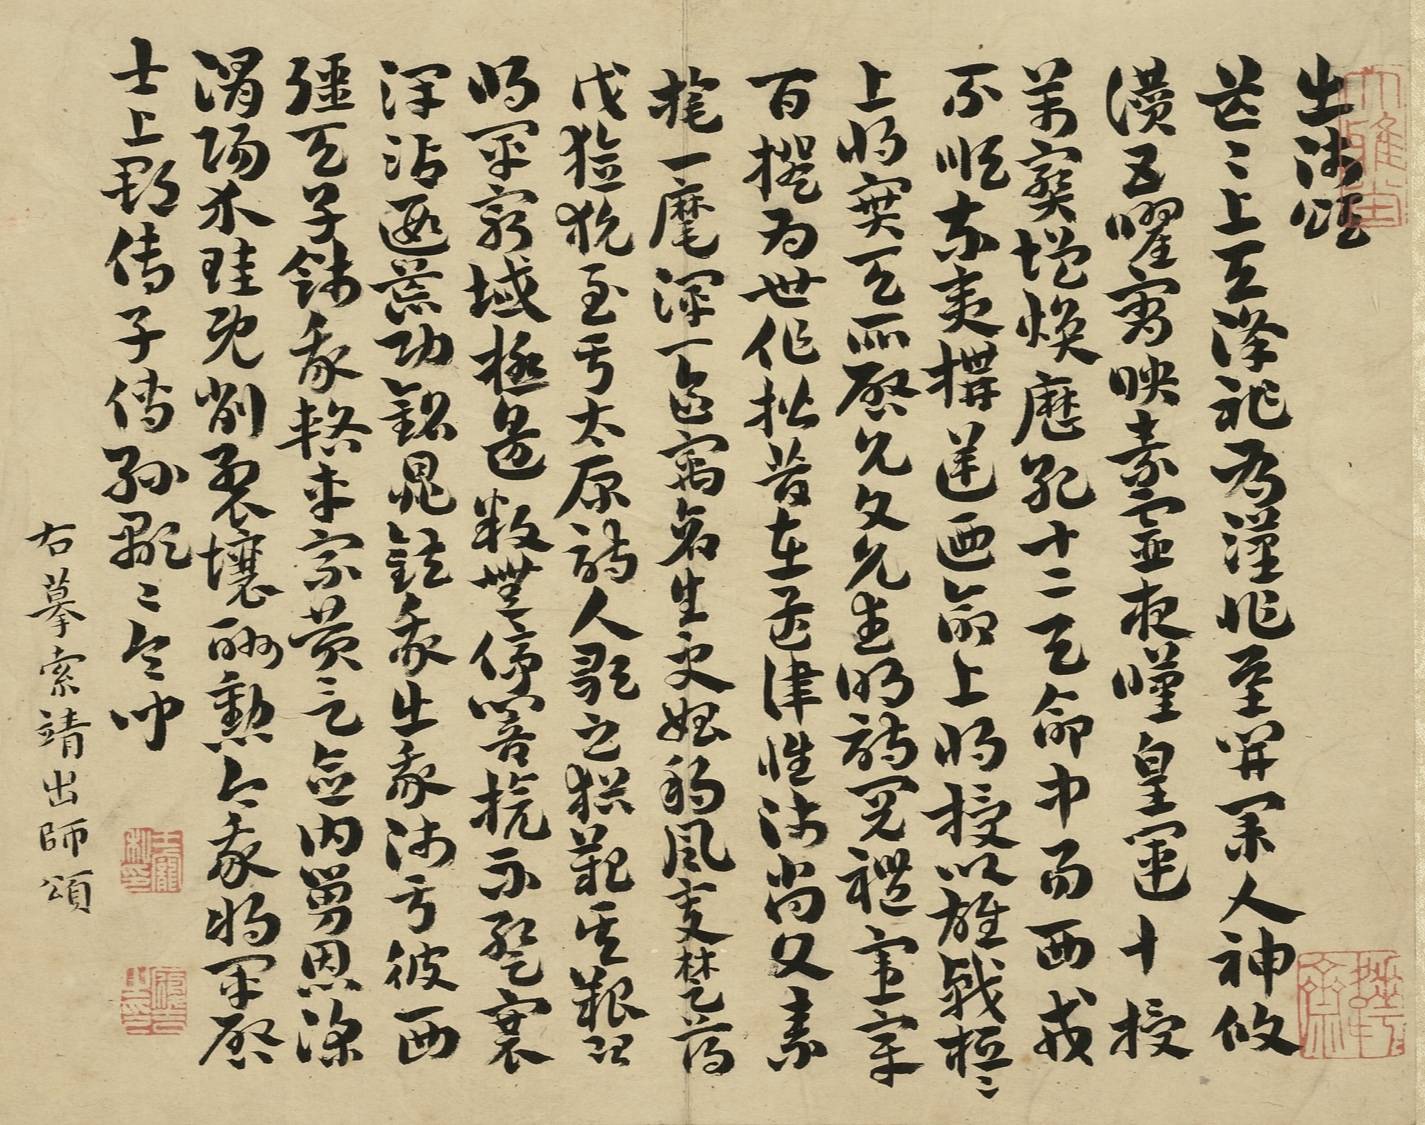 出師頌
茫〻上天降祚為漢作基開業人神攸
讚五曜霄映素靈夜嘆皇運十授
萬寶增煥歷紀十二天命中易西戎
不順東夷構逆西命上將授以雄戟桓〻
上將寔天所啟允文允武明詩閱禮憲章
百揆為世作楷昔在孟津惟師尚父素
旄一麾渾一區寓蒼生更始朔風變楚薄
伐獫狁至于太原詩人歌之猶歎其艱況
將軍窮域極邊鼓無停響旌不蹔褰
澤沾遐荒功銘鼎鉉我出我師于彼西
疆天子餞我輅車乘黃言念舅恩深
渭陽介珪既削裂壤酬勳今我將軍啟
土上郡傳子傳孫顯〻令問
右摹索靖出師頌